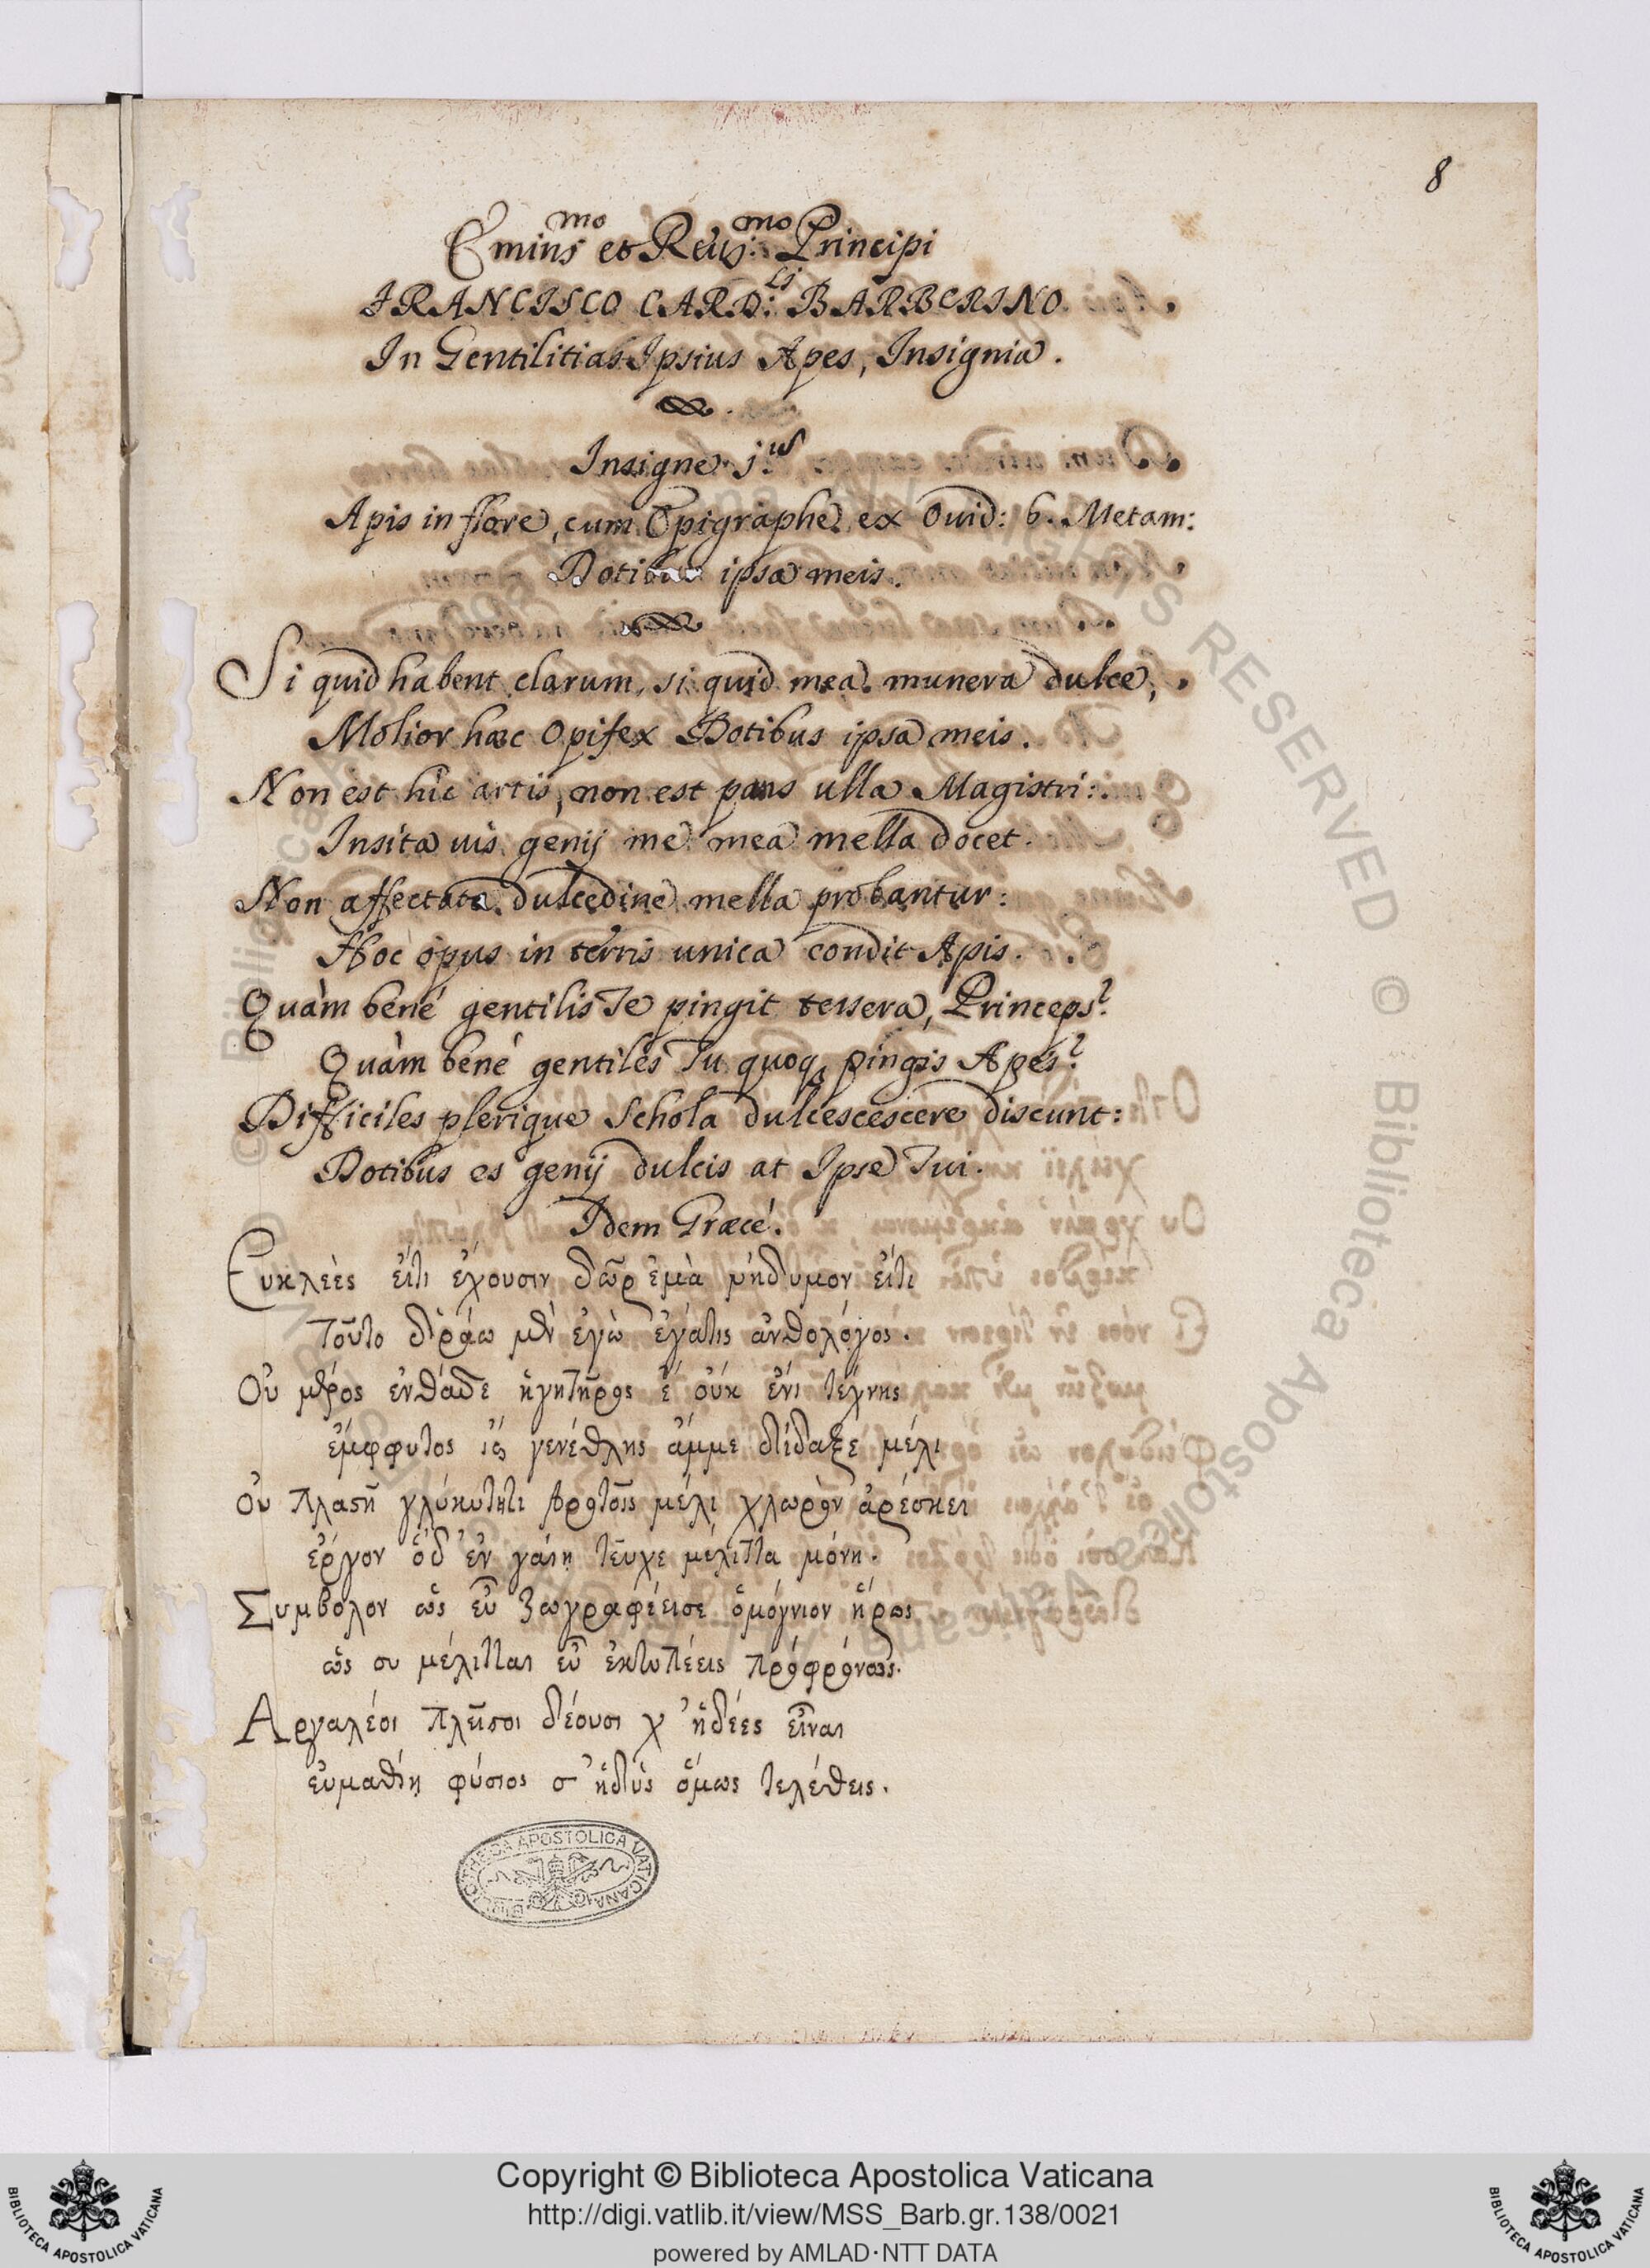 8
Emin̅s mo et Reũs: mo Principi
FRANCISCO CARD: li BARBERINO
In Gentilitias Ipsius Apes, Insignia.
Insigne j: us
Apis in flore, cum Epigraphe ex Ouid: 6. Metam:
Dotibus ipsa meis.
Si quid habent clarum, si quid mea munera dulce,
Molior hæc Opifex Dotibus ipsa meis.
Non est hic artis, non est pars ulla Magistri:
Insita uis genij me mea mella docet.
Non affectata dulcedine mella probantur:
Hoc opus in terris unica condit Apis.
Quàm bené gentilis Te pingit tessera, Princeps?
Quàm bené gentiles Tu quoq; pingis Apes?
Difficiles plerique Schola dulcescescere discunt:
Dotibus es genij dulcis at Ipse Tui.
Idem Græcé.
Ευκλεὲς εἴτι ἔχουσιν δῶρ ἐμὰ μήδυμον εἴτι
τοῦτο δράω μὲν ἐγὼ ἐγάτις ἀνθολόγος.
Οὐ μέρος ἐνθάδε ἡγητῆρος οὐκ ἔνι τέχνης
ἐμφφυτος γενέθλης ἄμμε δίδαξε μέλι
οὐ πλαστῇ γλυκύτητι βροτοῖς μέλι χλωρὸν ἀρέσκει
ἔργον ὅδ ἐν γαίῃ τεῦχε μέλιττα μόνη.
Συμβολον ὡς εὖ ζωγραφέεισε ὁμόγνιον ἥρως
ὡς συ μέλιτται εὖ ἐκτυπέεις προφρόνως.
Αργαλέοι πλεῖστοι δέουσι χ ἡδέες εἶναι
εὐμαθίῃ φύσιος σ ἡδὺς ὅμως τελέθεις.
BIBLIOTHECA APOSTOLICA VATICANA
© Biblioteca Apostolica Vaticana ALL RIGHTS RESERVED © Biblioteca Apostolica Vaticana
Copyright © Biblioteca Apostolica Vaticana
http://digi.vatlib.it/view/MSS_Barb.gr.138/0021
powered by AMLAD·NTT DATA
BIBLIOTECA APOSTOLICA VATICANA
BIBLIOTECA APOSTOLICA VATICANA